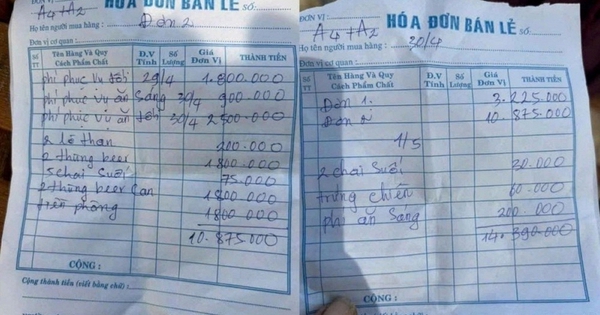 ĐƠN VỊ :
A4+A2
HÓA ĐƠN BÁN LẺ SỐ:
Họ tên người mua hàng : Đơn 2
Đơn vị cơ quan :
SỐ TT
Tên Hàng Và Quy Cách Phẩm Chất
Đ.V Tính
Số Lượng
Giá Đơn Vị
THÀNH TIỀN
phí phục vụ tối 29/4 1.800.000
phí phục vụ ăn sáng 30/4 900.000
phí phục vụ ăn tối 30/4 2500.000
2 lò than 200.000
2 thùng beer 1800.000
5 chai suối 75.000
2 thùng beer can 1800.000
tiền phòng 1800.000
10.875.000
CỘNG :
Cộng thành tiền (viết bằng chữ) :
ĐƠN VỊ :
A4+A2
HÓA ĐƠN BÁN LẺ SỐ:
Họ tên người mua hàng : 30/4
Đơn vị cơ quan :
SỐ TT
Tên Hàng Và Quy Cách Phẩm Chất
Đ.V Tính
Số Lượng
Giá Đơn Vị
THÀNH TIỀN
Đơn 1. 3.225.000
Đơn 2 10.875.000
1/5
2 chai suối 30.000
trứng chiên 60.000
phí ăn sáng 200.000
14.390.000
CỘNG :